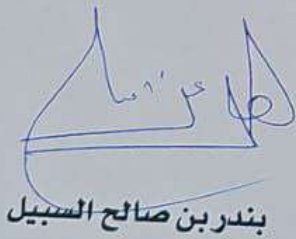 بندر بن صالح السبيل